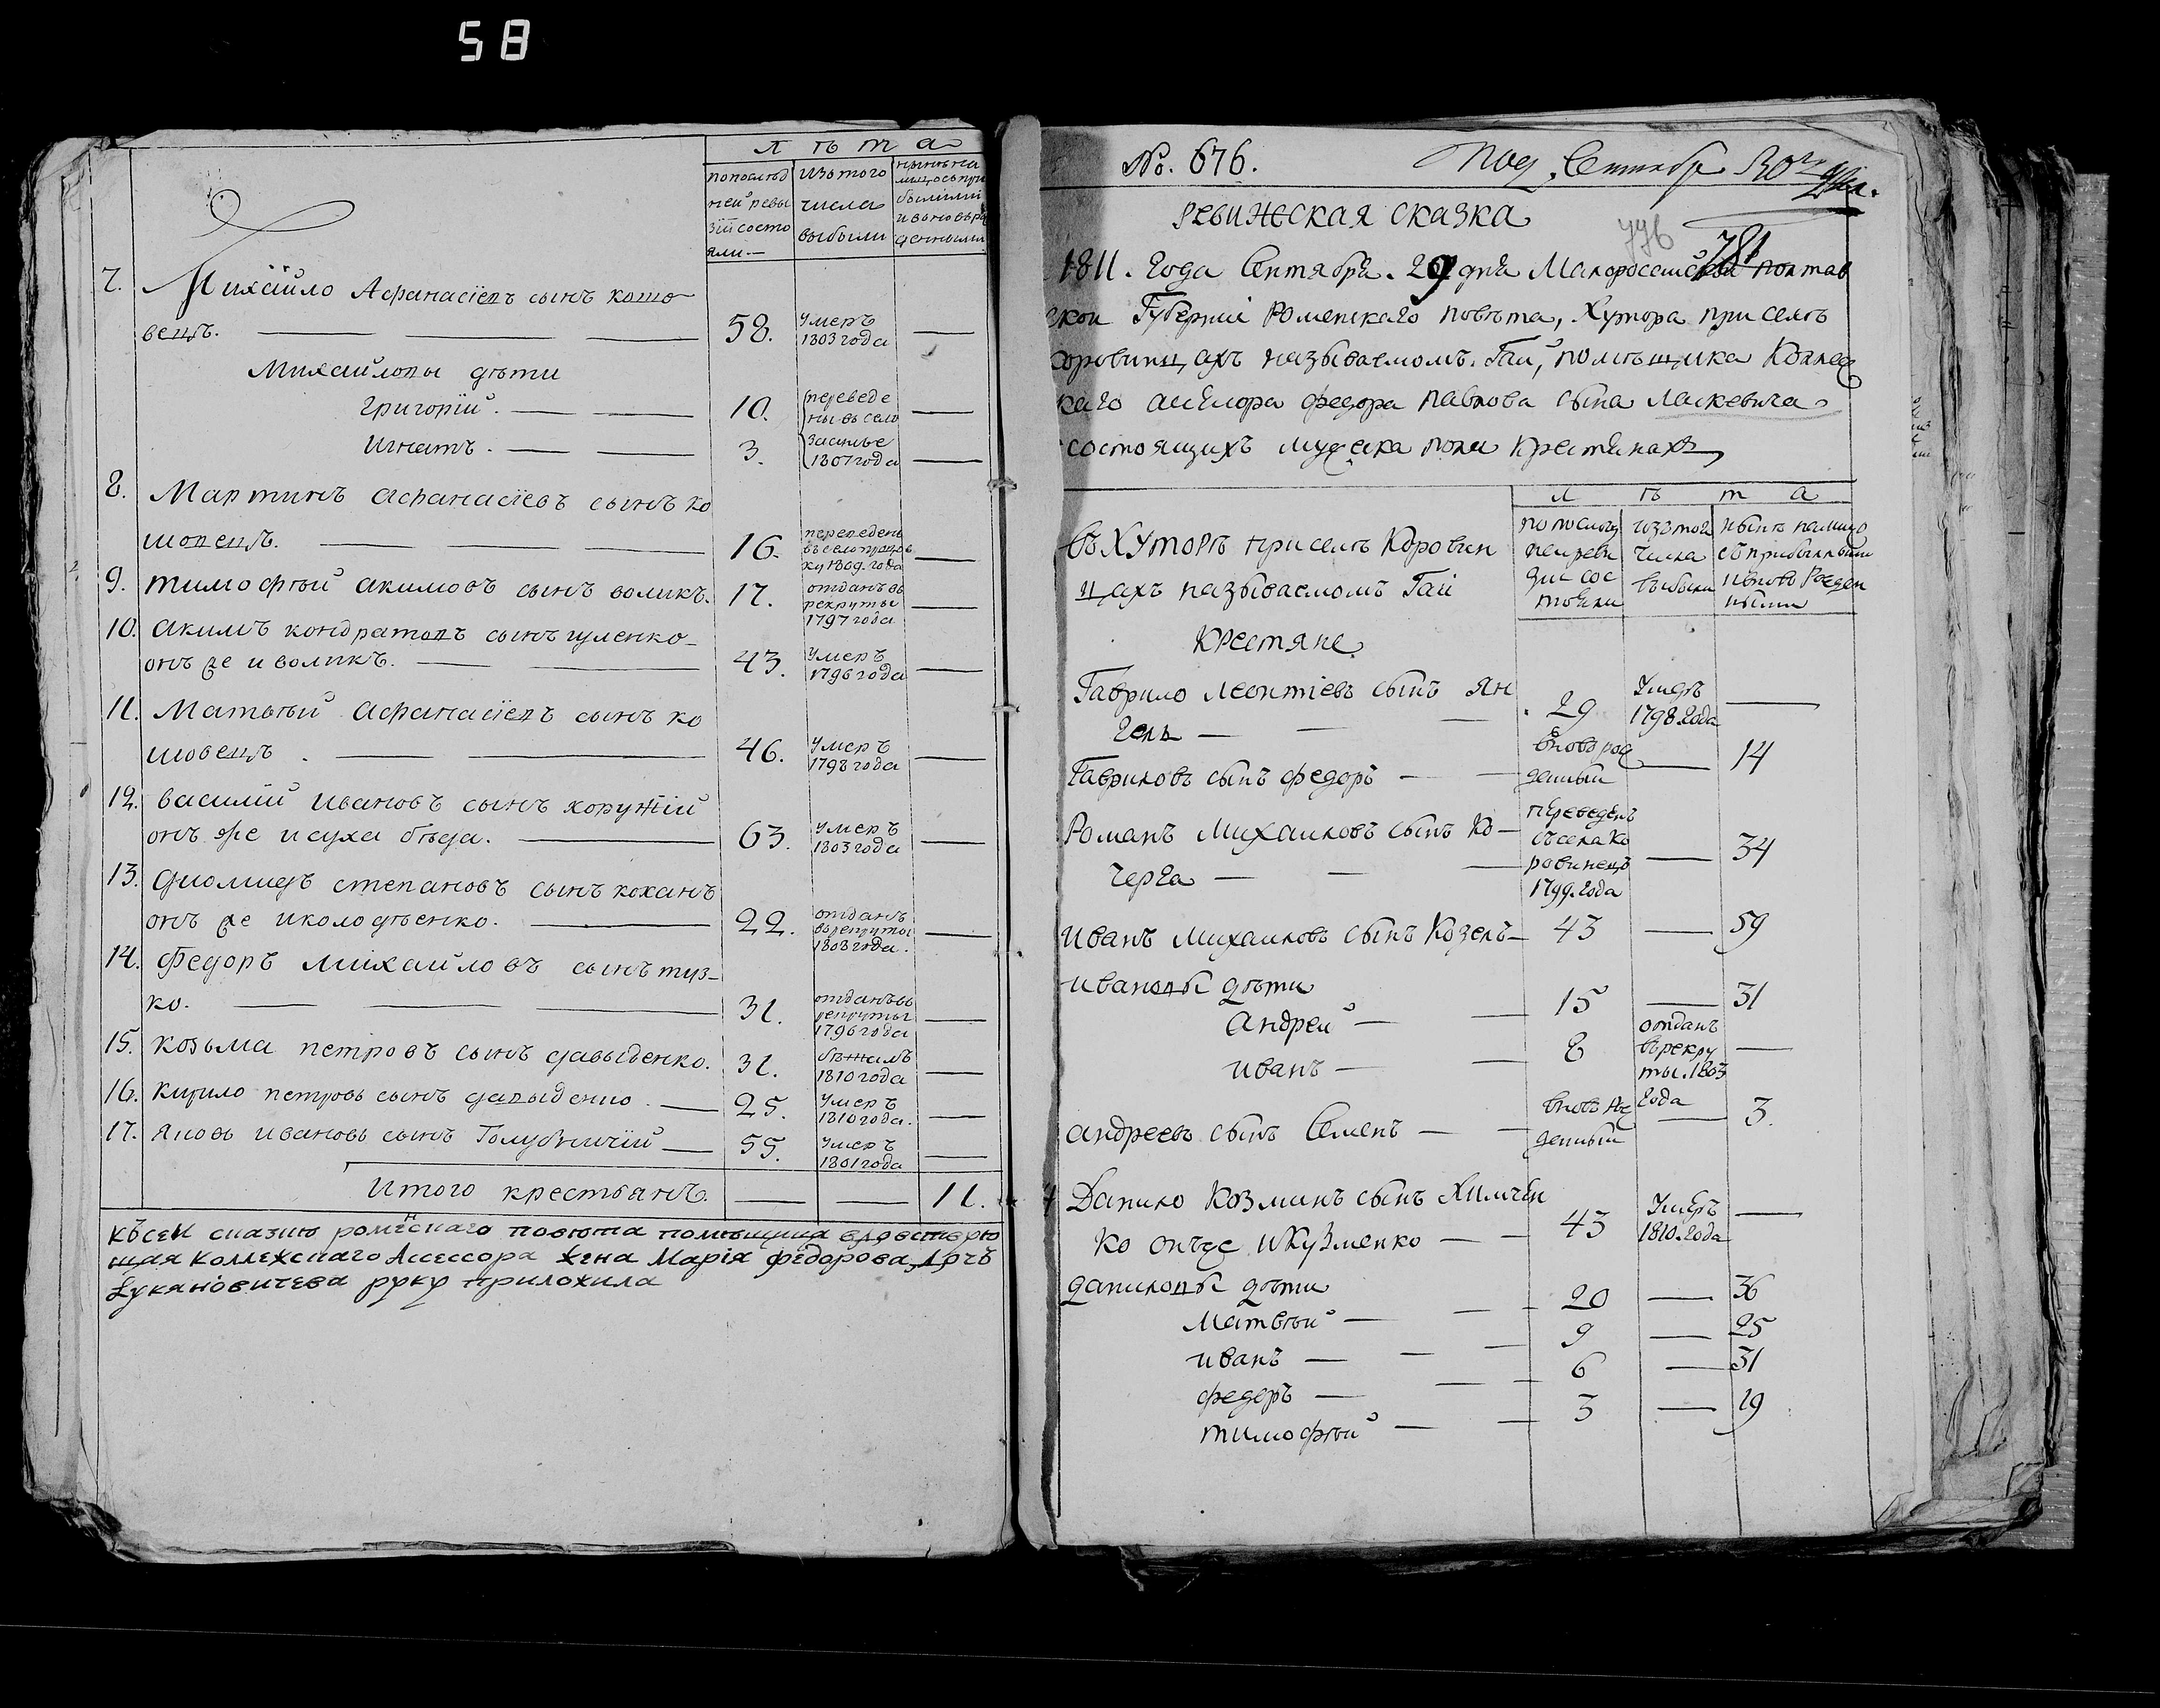 58
лѣта
по послѣд
ней реви
зіи состо
яли —
из того
числа
выбыли
нынѣ на
лицо съ при
былыми
и вновь ра
жденными
7. Михайло Афанасіевъ сынъ кошо
вецъ. 58. умеръ 1803 года
Михайловы дѣти
Григорій. 10. переведе
ны въ село
Игнатъ. 3.
1807 года
8. Мартинъ Афанасіевъ сынъ ко
шовецъ. 16. переведенъ
въ село
1809. года
9. тимофѣй акимовъ сынъ воликъ. 17. отданъ въ
рекруты
1797 года
10. акимъ кондратовъ сынъ гуленко
онъ же и воликъ. 43. умеръ
1796 года
11. Матвѣй Афанасіевъ сынъ ко
шовецъ. 46. умеръ
1798 года
12. василій Ивановъ сынъ хоружій
онъ же и суха бѣда. 63. умеръ
1803 года
13. Диомидъ степановъ сынъ коханъ
онъ же и колодѣенко. 22. отданъ
въ рекруты
1803 года.
14. Федоръ Михайловъ сынъ туз
ко. 31. отданъ въ
рекруты
1796 года
15. козьма петровъ сынъ давыденко. 31. бѣжалъ
1810 года
16. Кирило петровъ сынъ давыденко. 25. умеръ
1810 года.
17. Яковъ ивановъ сынъ Голубничій 55. умеръ
1801 года
Итого крестьянъ. 11.
Къ сей сказки роменскаго повѣта помѣщица
Коллежскаго Асессора жена Марія Федорова дочъ
Лукяновичева руку приложила
№. 676. Под. Сентябр 30го
776 781
ревижеская сказка
1811. Года Сентября. 29 дня Малоросійской полтав
ской Губерніи Роменскаго повѣта, Хутора при селѣ
Коровинцахъ называемомъ. Гай, помѣщика Коллеж
каго асесора федора павлова сына Маскевича
состоящихъ мужеска пола крестянахъ
лѣта
въ Хуторѣ при селѣ Коровин
цахъ называемомъ Гаи
по послед
ней реви
зіи сос
тояли
изъ того
числа
выбыли
нынѣ на лицо
съ прибылыми
и вновь рожден
ными
Крестяне
Гаврило леонтіевъ сынъ Ян
гелъ 29 Умеръ
1798. года
Гавриловъ сынъ федоръ вновь рож
денный 14
Романъ Михаиловъ сынъ Ко
черга переведенъ
съ села Ко
ровинецъ
1799. года 34
иванъ михаиловъ сынъ Козелъ 43 59
ивановы дѣти
Андрей 15 31
иванъ 8 отданъ
въ рекру
ты. 1803
года
андреевъ сынъ Семенъ вновь рож
денный 3.
Данило Козминъ сынъ Химчен
ко онже и Кузменко 43 Умеръ
1810. года
даниловы дѣти
Матвѣй 20 36
иванъ 9 25
федоръ 6 31
тимофѣй 3 19